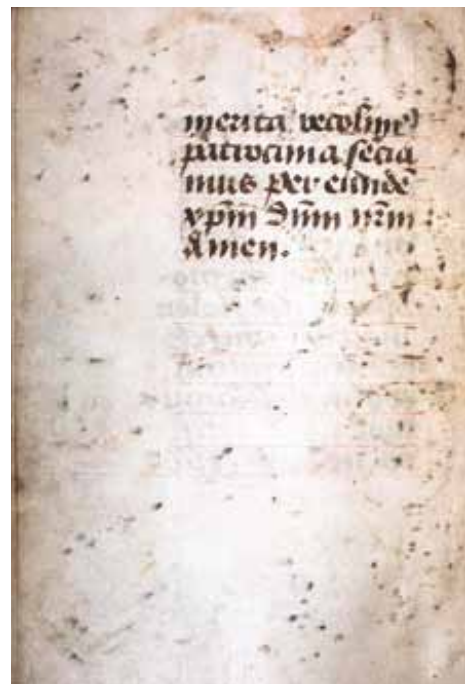 merita recolim᷒
patrocinia sēcia
mus per eundē
xp̄m dn̄m nr̄m :
Amen.